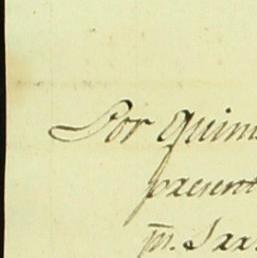 Por quin
present
m. Sar